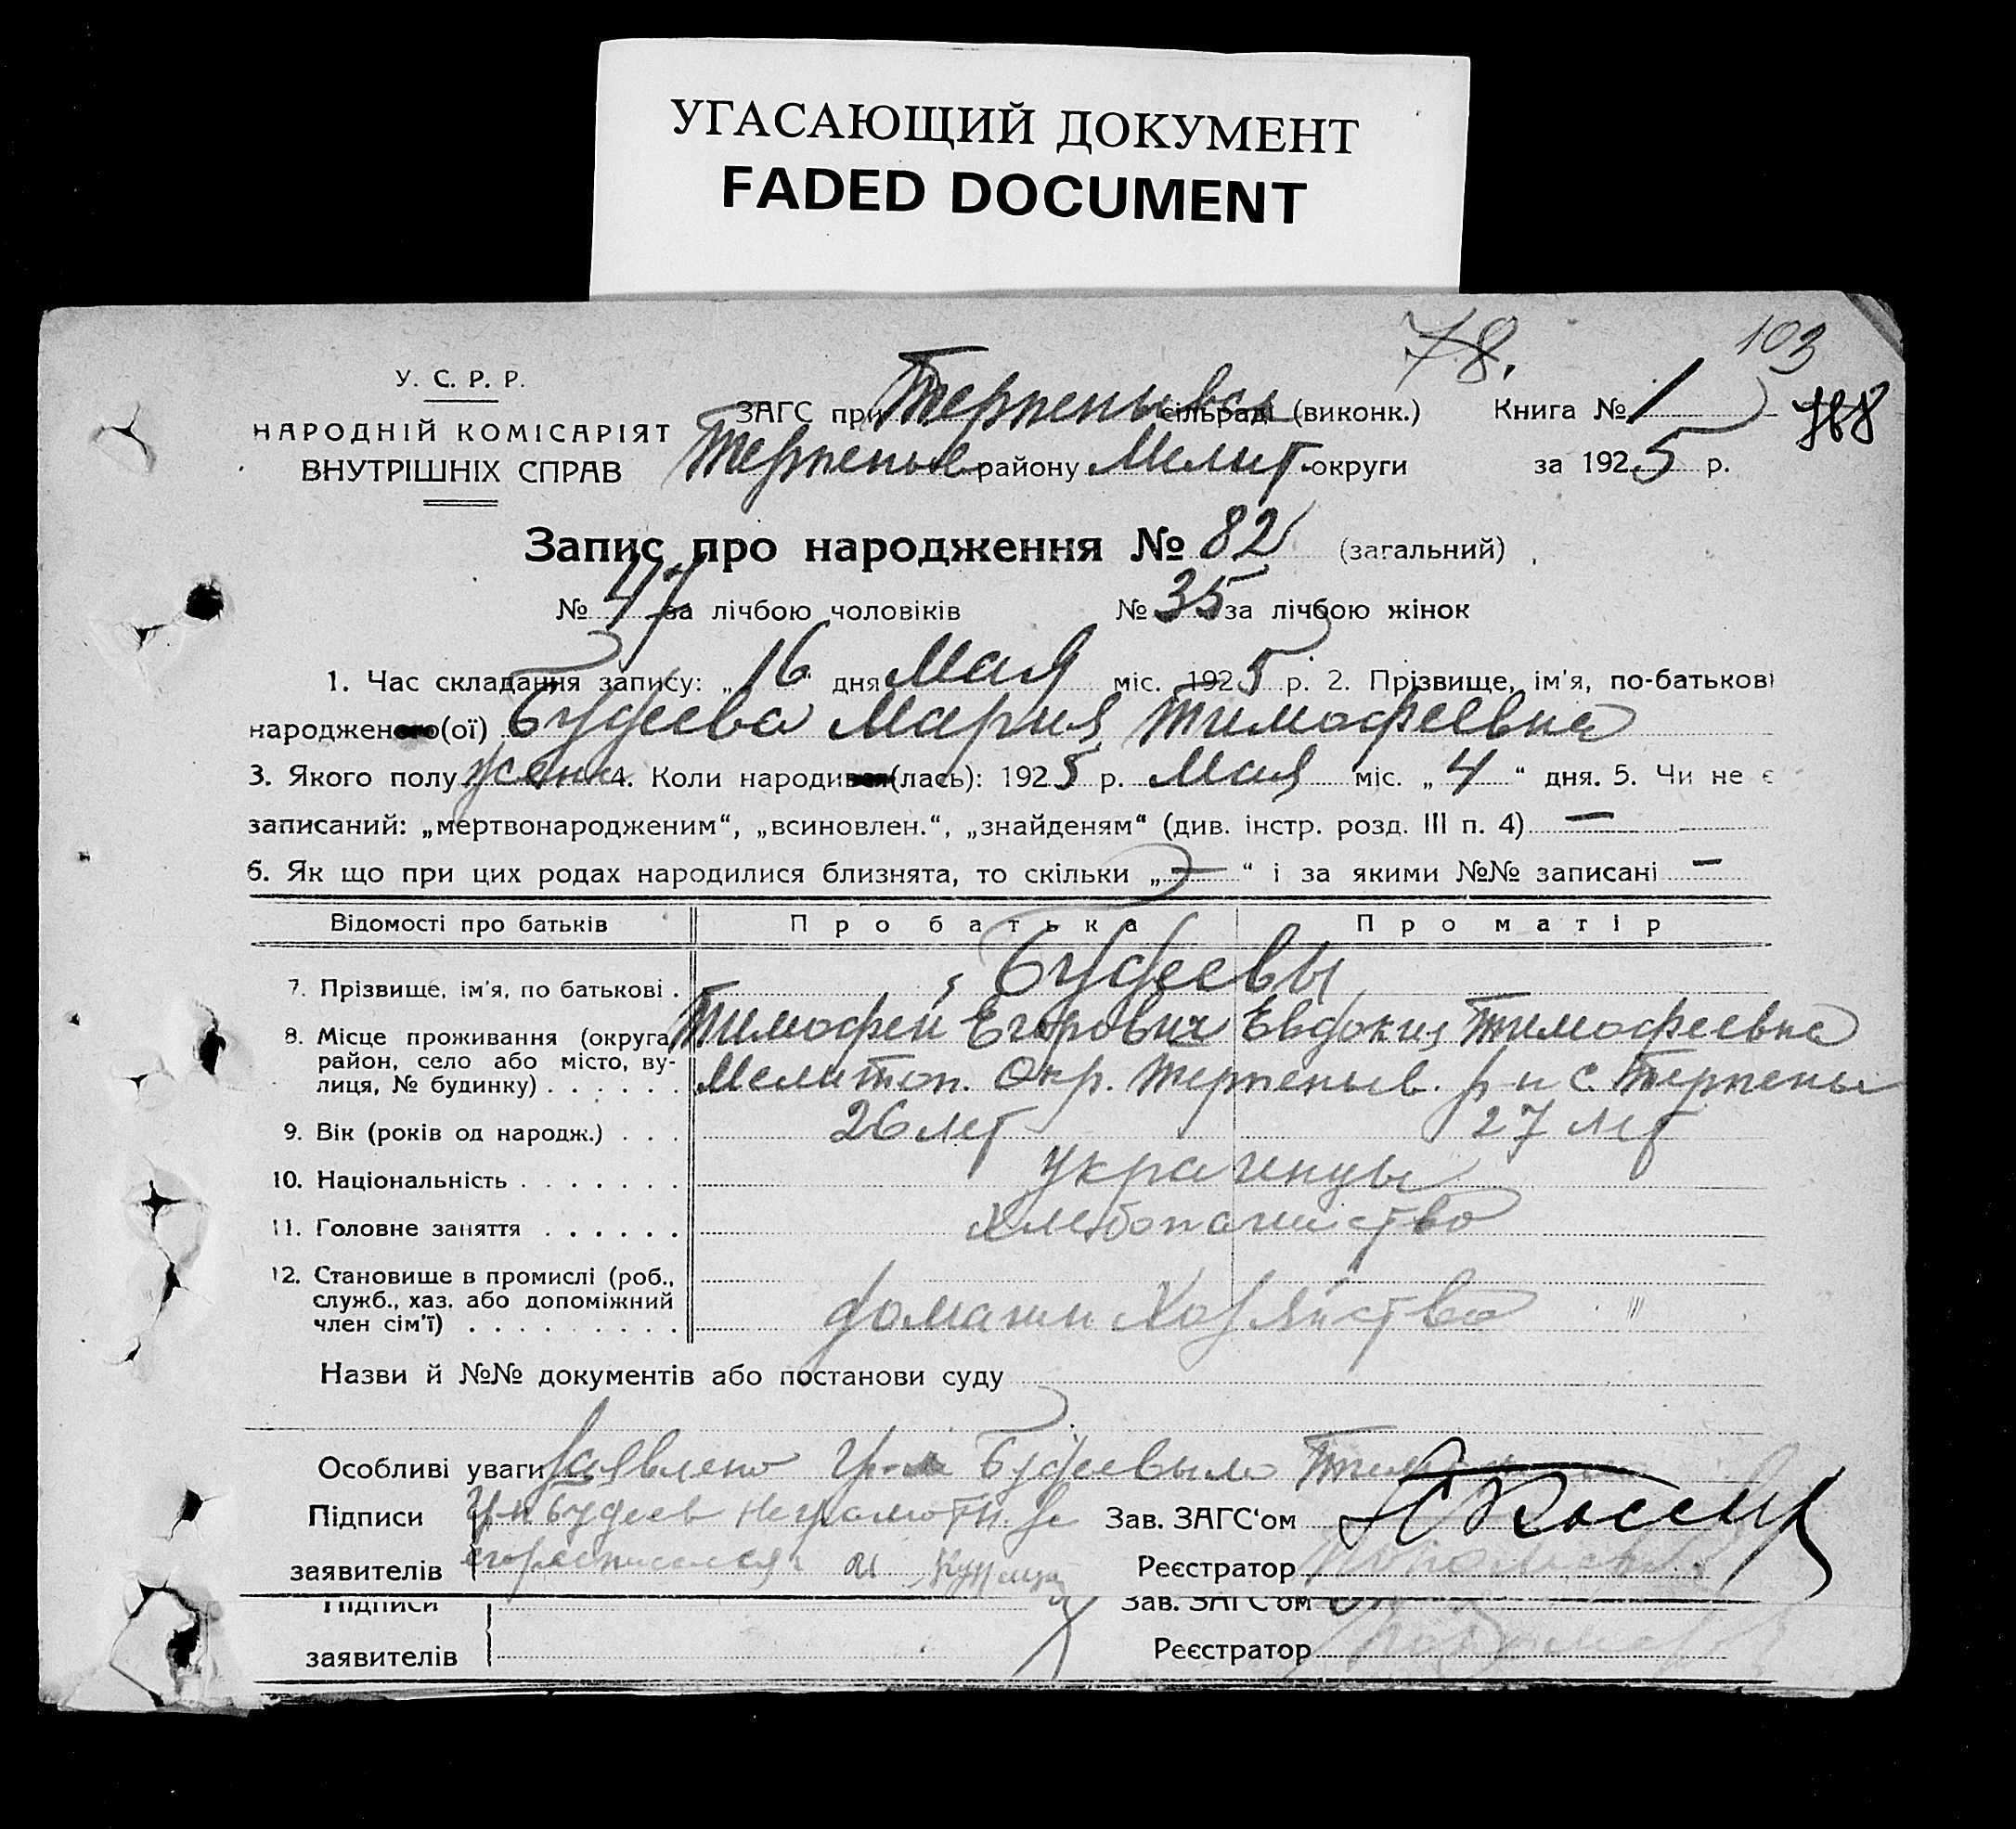 УГАСАЮЩИЙ ДОКУМЕНТ
FADED DOCUMENT
78.
103
У. С. Р. Р.
НАРОДНІЙ КОМІСАРІЯТ
ВНУТРІШНІХ СПРАВ
ЗАГС при сільраді (виконк.) Книга № 1
району Мелит. округи за 1925 р.
Запис про народження № 82 (загальний)
№ 47 за лічбою чоловіків № 35 за лічбою жінок
1. Час складання запису: „16 дня Мая міс. 1925 р. 2. Прізвище, ім'я, по-батькові
народженого(ої) Будеева Мария Тимофеевна
3. Якого полу женск 4. Коли народився(лась): 1925 р. Мая міс. „4“ дня. 5. Чи не є
записаний: „мертвонародженим“, „всиновлен.“, „знайденям“ (див. інстр. розд. III п. 4) —
6. Як що при цих родах народилися близнята, то скільки „—“ і за якими №№ записані —
Відомості про батьків Про батька Про матір
7. Прізвище, ім'я, по батькові . Будеевы
Тимофей Егорович Евдокия Тимофеевна
8. Місце проживання (округа,
район, село або місто, ву-
лиця, № будинку) . . . . . . Мелитоп. Окр. Терпеньев. р и с. Терпенье
9. Вік (років од народж.) . . . 26 лет 27 лет
10. Національність . . . . . . . украинцы
11. Головне заняття . . . . . . хлебопашество
12. Становище в промислі (роб.,
служб., хаз. або допоміжний
член сім'ї) . . . . . . . . . домашн хозяйство "
Назви й №№ документів або постанови суду
Особливі уваги Заявлено гр-м Будеевым
Підписи гр-н Будеев неграмотн. за Зав. ЗАГС'ом
заявителів Реєстратор
Підписи Зав. ЗАГС'ом
заявителів Реєстратор